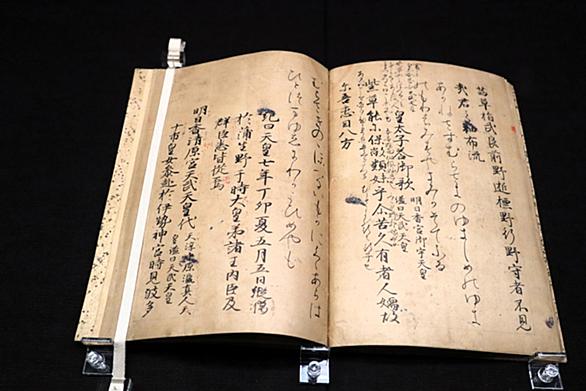 茜草指武良前野逝標野行野守者不見
哉君之袖布流
あかねさすむらさきのゆきしめのゆき
のもりはみすやきみかそてふる
皇太子答御歌 明日香宮御宇天皇
謚曰天武天皇
紫草能尓保敝類妹乎尓苦久有者人嬬故
尓吾恋目八方
むらさきのにほへるいもかにくゝあらは
ひとつまゆゑにわれこひめやも
紀曰天皇七年丁卯夏五月五日縦獦
於蒲生野于時大皇弟諸王内臣及
群臣悉皆従焉
明日香清原宮天武天皇代 天渟中原瀛真人天
皇謚曰天武天皇
十市皇女参赴於伊勢神宮時見波多